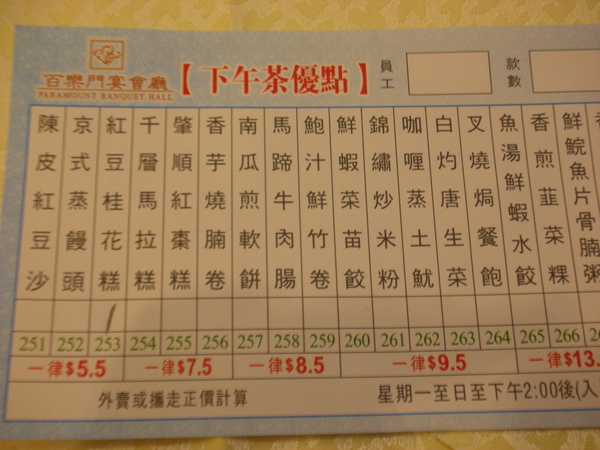 百樂門宴會廳
PARAMOUNT BANQUET HALL
【下午茶優點】
員工
款數
陳皮紅豆沙
京式蒸饅頭
紅豆桂花糕
千層馬拉糕
肇順紅棗糕
香芋燒腩卷
南瓜煎軟餅
馬蹄牛肉腸
鮑汁鮮竹卷
鮮蝦菜苗餃
錦繡炒米粉
咖喱蒸土魷
白灼唐生菜
叉燒焗餐飽
魚湯鮮蝦水餃
香煎韮菜粿
鮮鯇魚片骨腩粥
251 252 253 254 255 256 257 258 259 260 261 262 263 264 265 266
一律$5.5 一律$7.5 一律$8.5 一律$9.5 一律$13.
外賣或攜走正價計算
星期一至日至下午2:00後(入